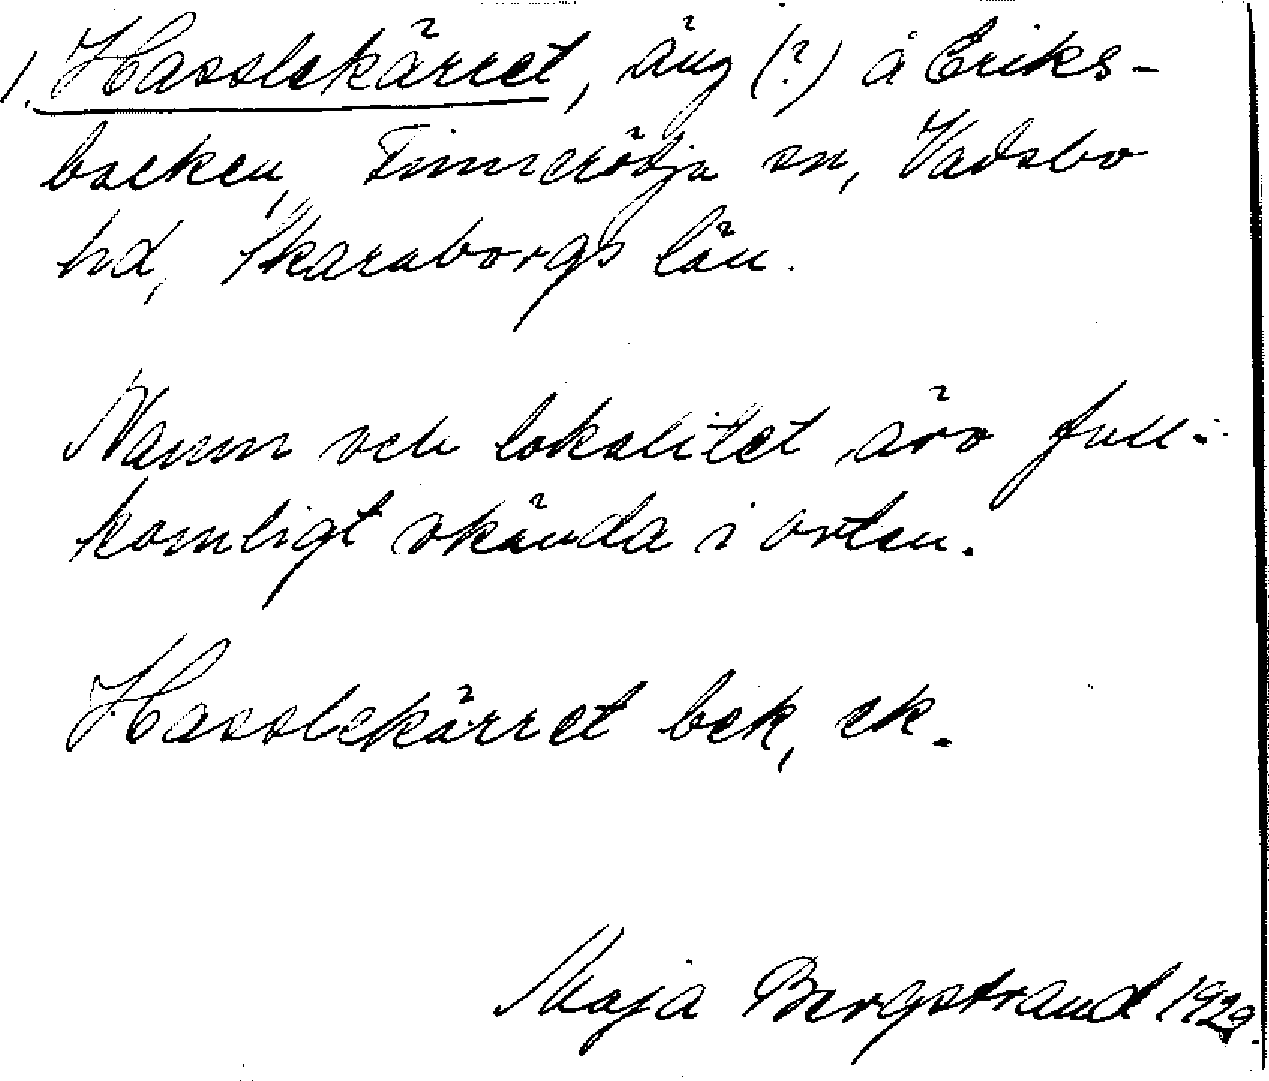 1. Hasslekärret, äng (?) å Eriks-
backen, Finnerödja sn, Vadsbo
hd, Skaraborgs län.
Namn och lokalitet äro full-
komligt okända i orten.
Hasslekärret bek, ek.
Maja Bergstrand 1929.